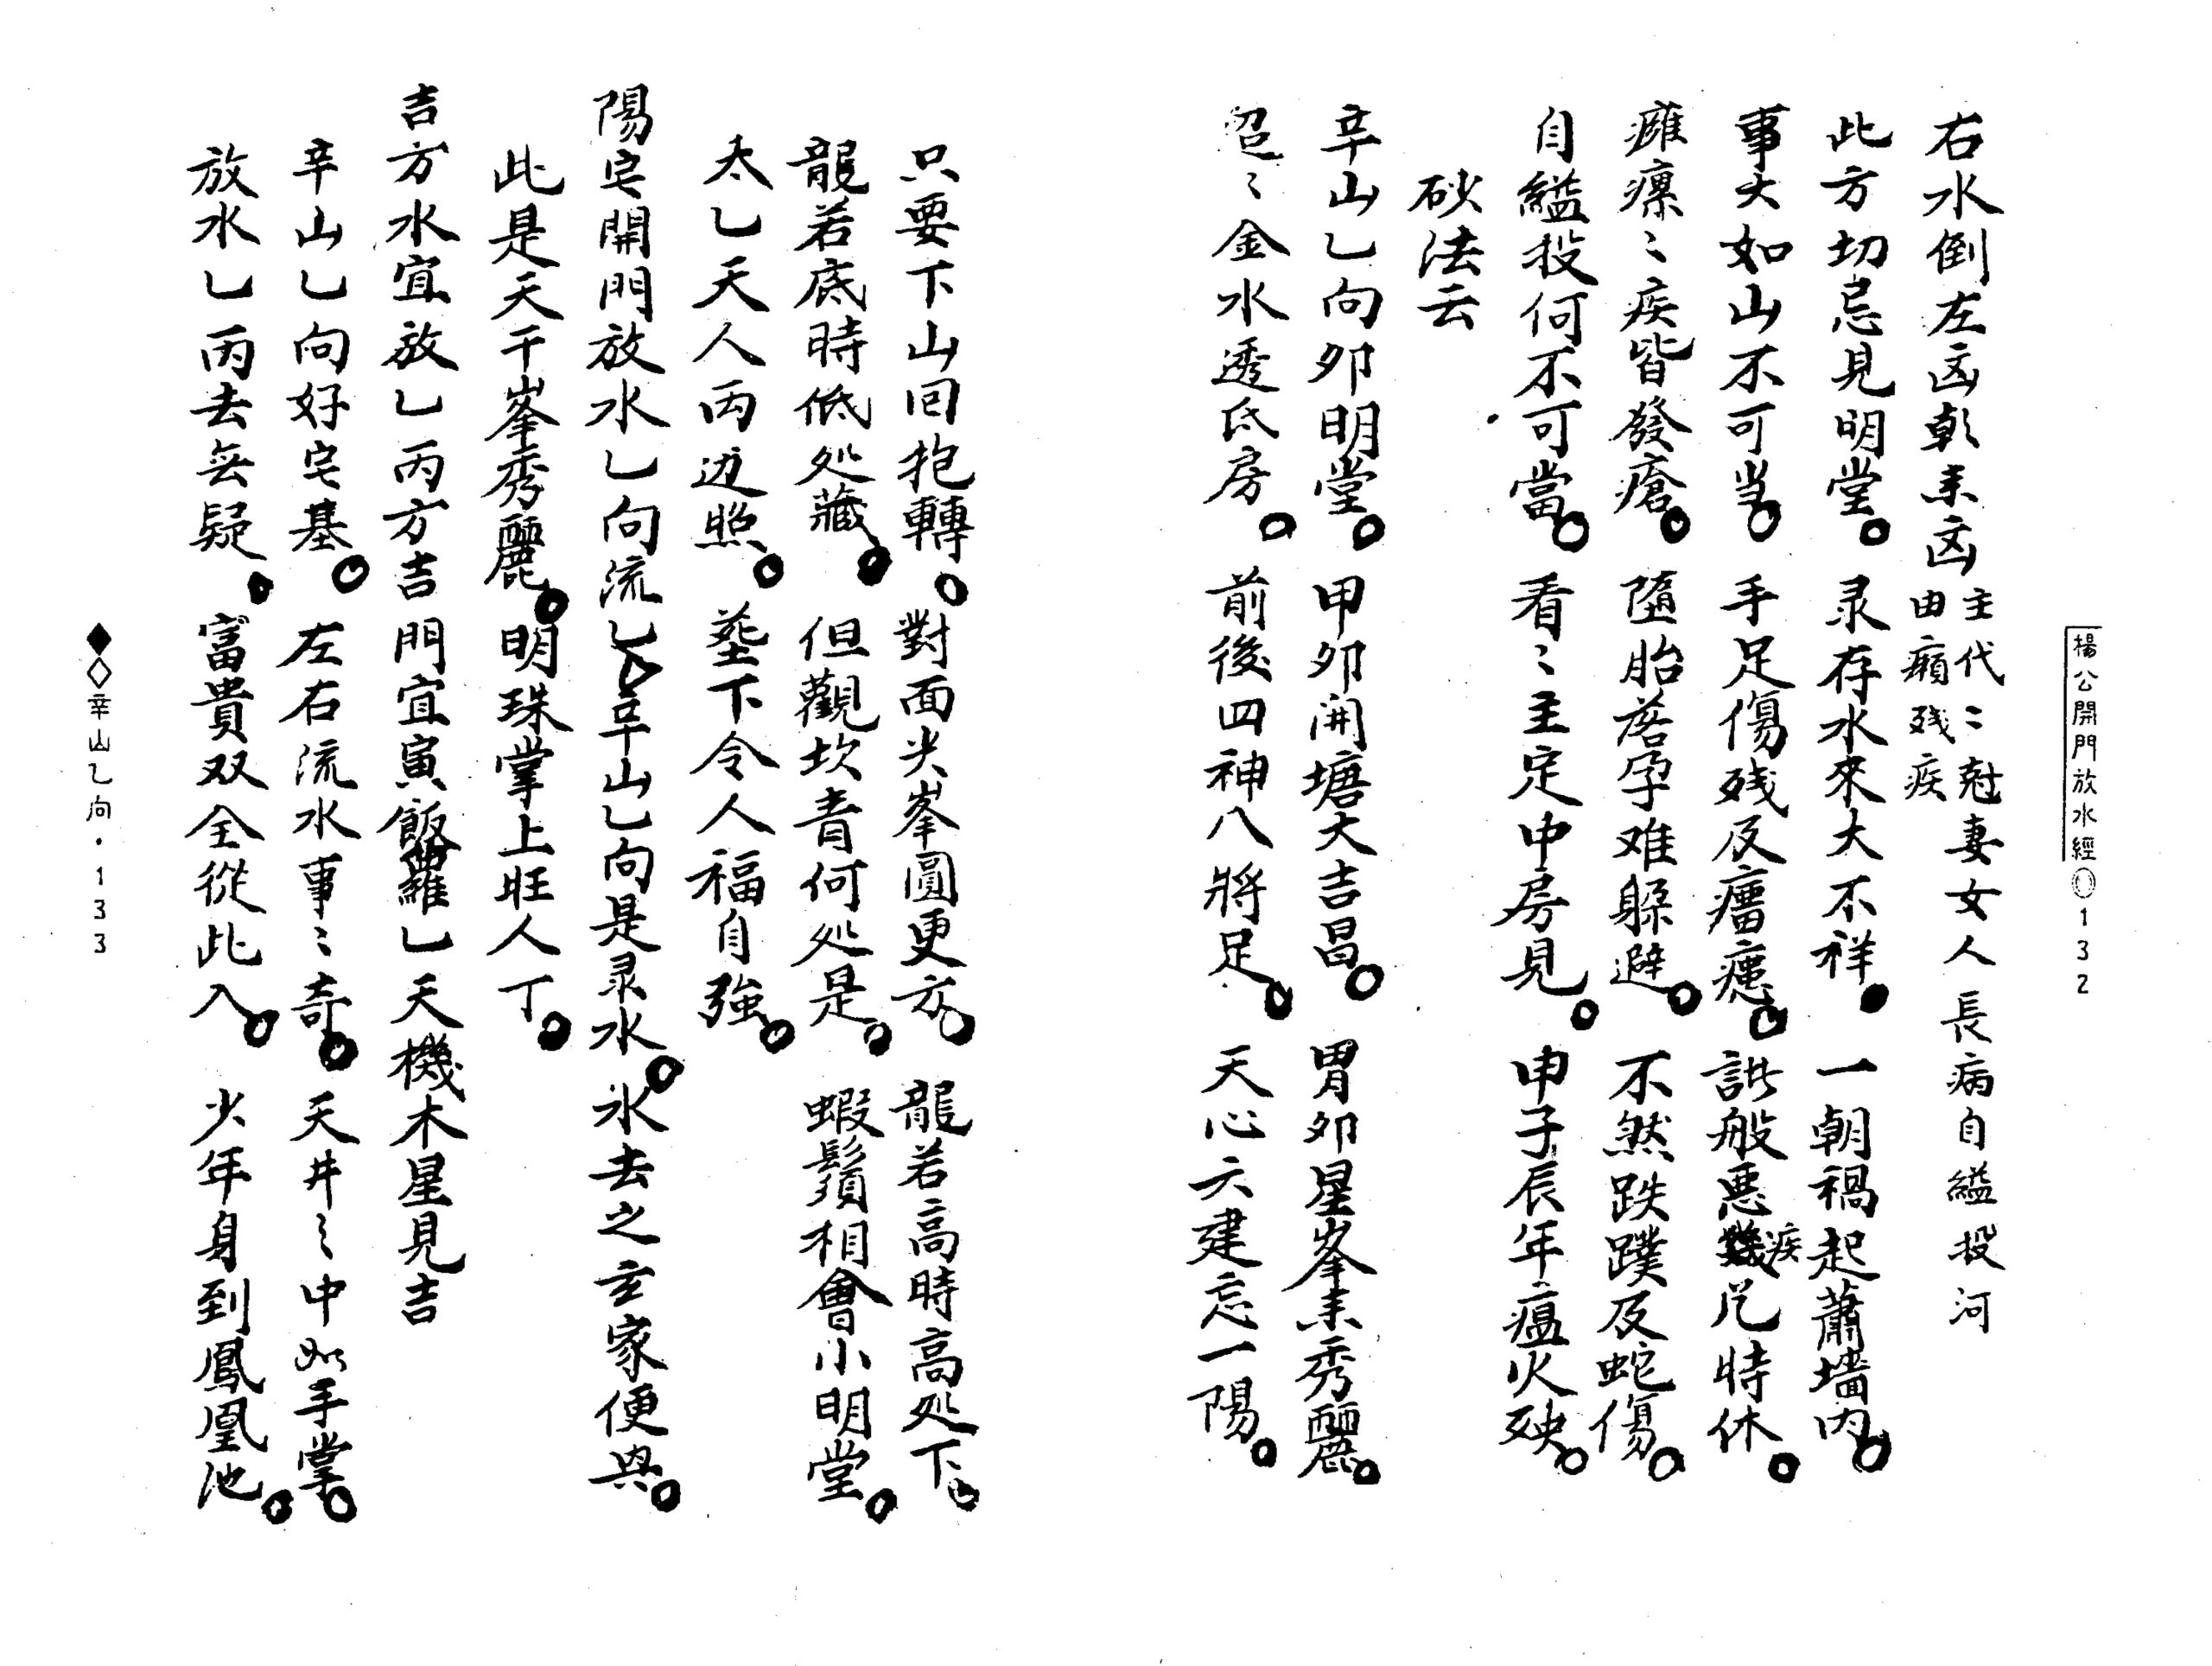 楊公開門放水經 132
右水倒左凶乾未凶 主代〻尅妻女人長病自縊投河
由癩残疾
此方切忌見明堂。 录存水來大不祥。 一朝禍起蕭墻內。
事大如山不可当。 手足傷残及癰 般恶疾几時休。
癱瘰〻疾皆發瘡。 墮胎落孕难躲避。 不然跌蹼及蛇傷。
自縊投何不可當。 看〻主定中房見。 申子辰年瘟火殃。
砂法云
辛山乙向卯明堂。 甲卯開塘大吉昌。 胃卯星峯耒秀麗。
迢〻金水透氐房。 前後四神八將足。 天心六建忘一陽。
只要下山回抱轉。 對面尖峯圓更方。 龍若高時高处下。
龍若底時低处藏。 但觀坎青何处是。 蝦鬚相會小明堂。
太乙天人兩边照。 塟下令人福自強。
陽宅開門放水乙向流乙 辛山乙向是录水。 水去之玄家便興。
此是天干峯秀麗。 明珠掌上旺人丁。
吉方水宜放乙丙方吉門宜寅 乙天機木星見吉
辛山乙向好宅基。 左右流水事〻奇。 天井〻中如手掌。
放水乙丙去無疑。 富貴双全從此入。 少年身到鳳凰池。
辛山乙向・133